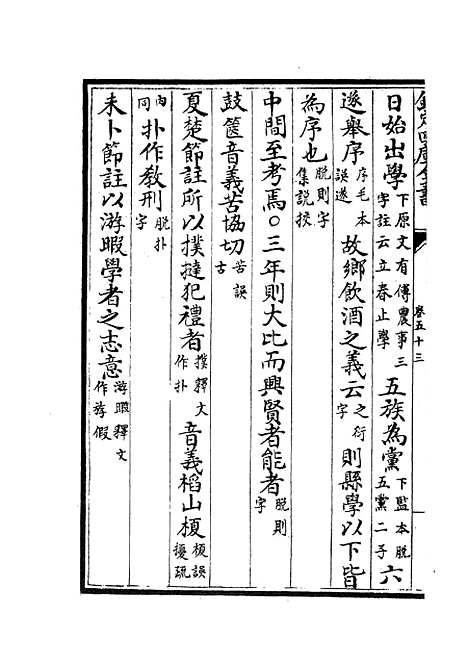 欽定四庫全書 卷五十三
日始出學下原文有傅農事三字註云立春止學五族為黨下監本脱五黨二字六
遂舉序序毛本誤遂故鄉飲酒之義云之衍字則縣學以下皆
為序也脱則字集説挍
中間至考焉○三年則大比而興賢者能者脱則字
鼓篋音義苦協切苦誤古
夏楚節註所以撲撻犯禮者撲釋文作扑音義槄山榎榎誤疏
内同扑作教刑脱扑字
未卜節註以游暇學者之志意游暇釋文作斿假